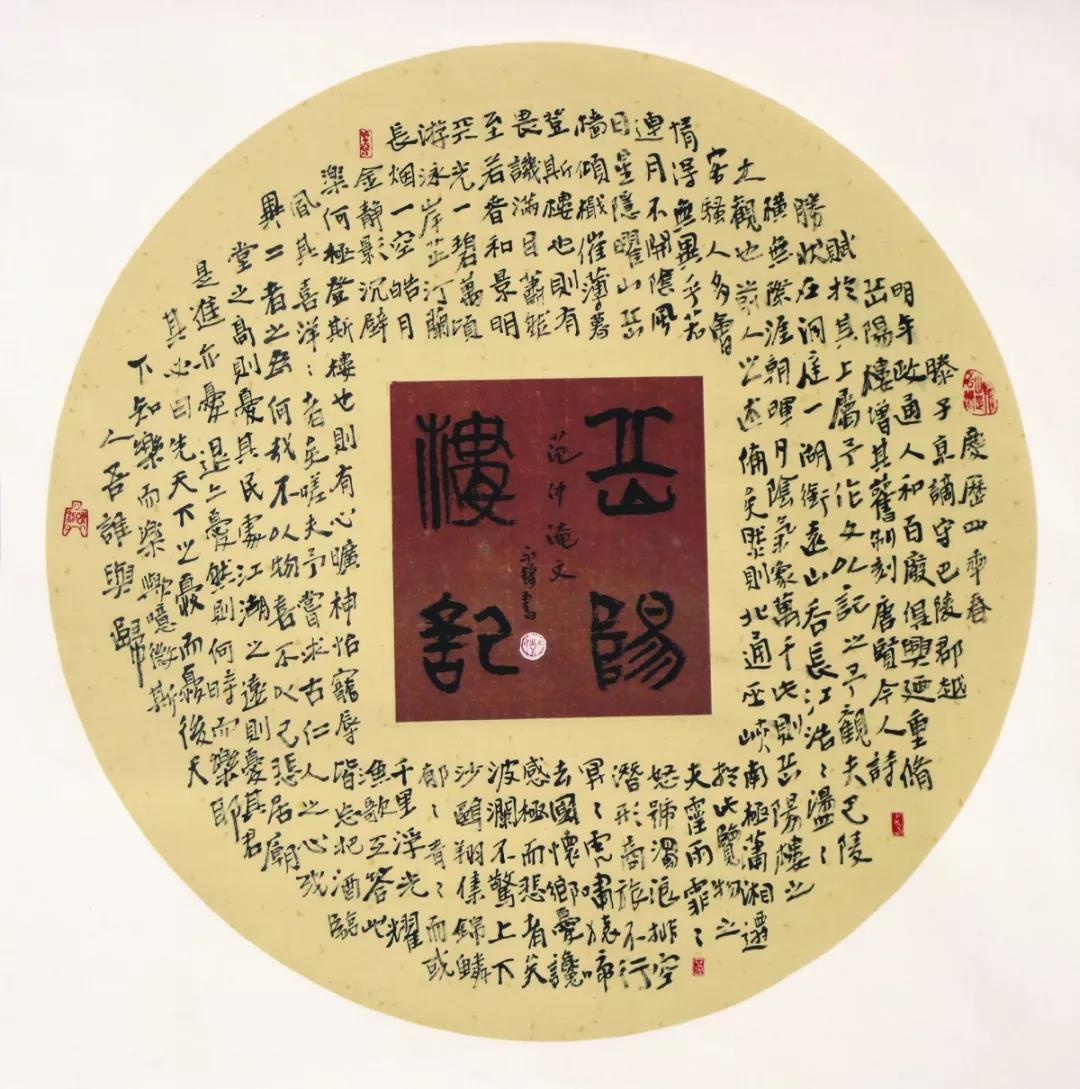 慶歷四年春
滕子京謫守巴陵郡越
明年政通人和百廢俱興廼重脩
岳陽樓增其舊制刻唐賢今人詩
賦於其上屬予作文以記之予觀夫巴陵
勝狀在洞庭一湖銜遠山吞長江浩〻盪〻
橫無際涯朝暉夕陰氣象萬千此則岳陽樓之
大觀也前人之述備矣然則北通巫峽南極瀟湘遷
客騷人多會於此覽物之
情得無異乎若夫霪雨霏〻
連月不開陰風怒號濁浪排空
日星隱曜山岳潛形商旅不行
檣傾檝摧薄暮冥〻虎嘯猿啼
登斯樓也則有去國懷鄉憂讒
畏譏滿目蕭然感極而悲者矣
至若春和景明波瀾不驚上下
天光一碧萬頃沙鷗翔集錦鱗
游泳岸芷汀蘭郁〻青〻而或
長烟一空皓月千里浮光耀
金靜影沉璧漁歌互答此
樂何極登斯樓也則有心曠神怡寵辱皆忘把酒臨
風其喜洋〻者矣嗟夫予嘗求古仁人之心或
異二者之為何哉不以物喜不以己悲居廟
堂之高則憂其民處江湖之遠則憂其君
是進亦憂退亦憂然則何時而樂耶
其必曰先天下之憂而憂後天
下知樂而樂歟噫微斯
人吾誰與歸
岳陽
樓記
范仲淹文